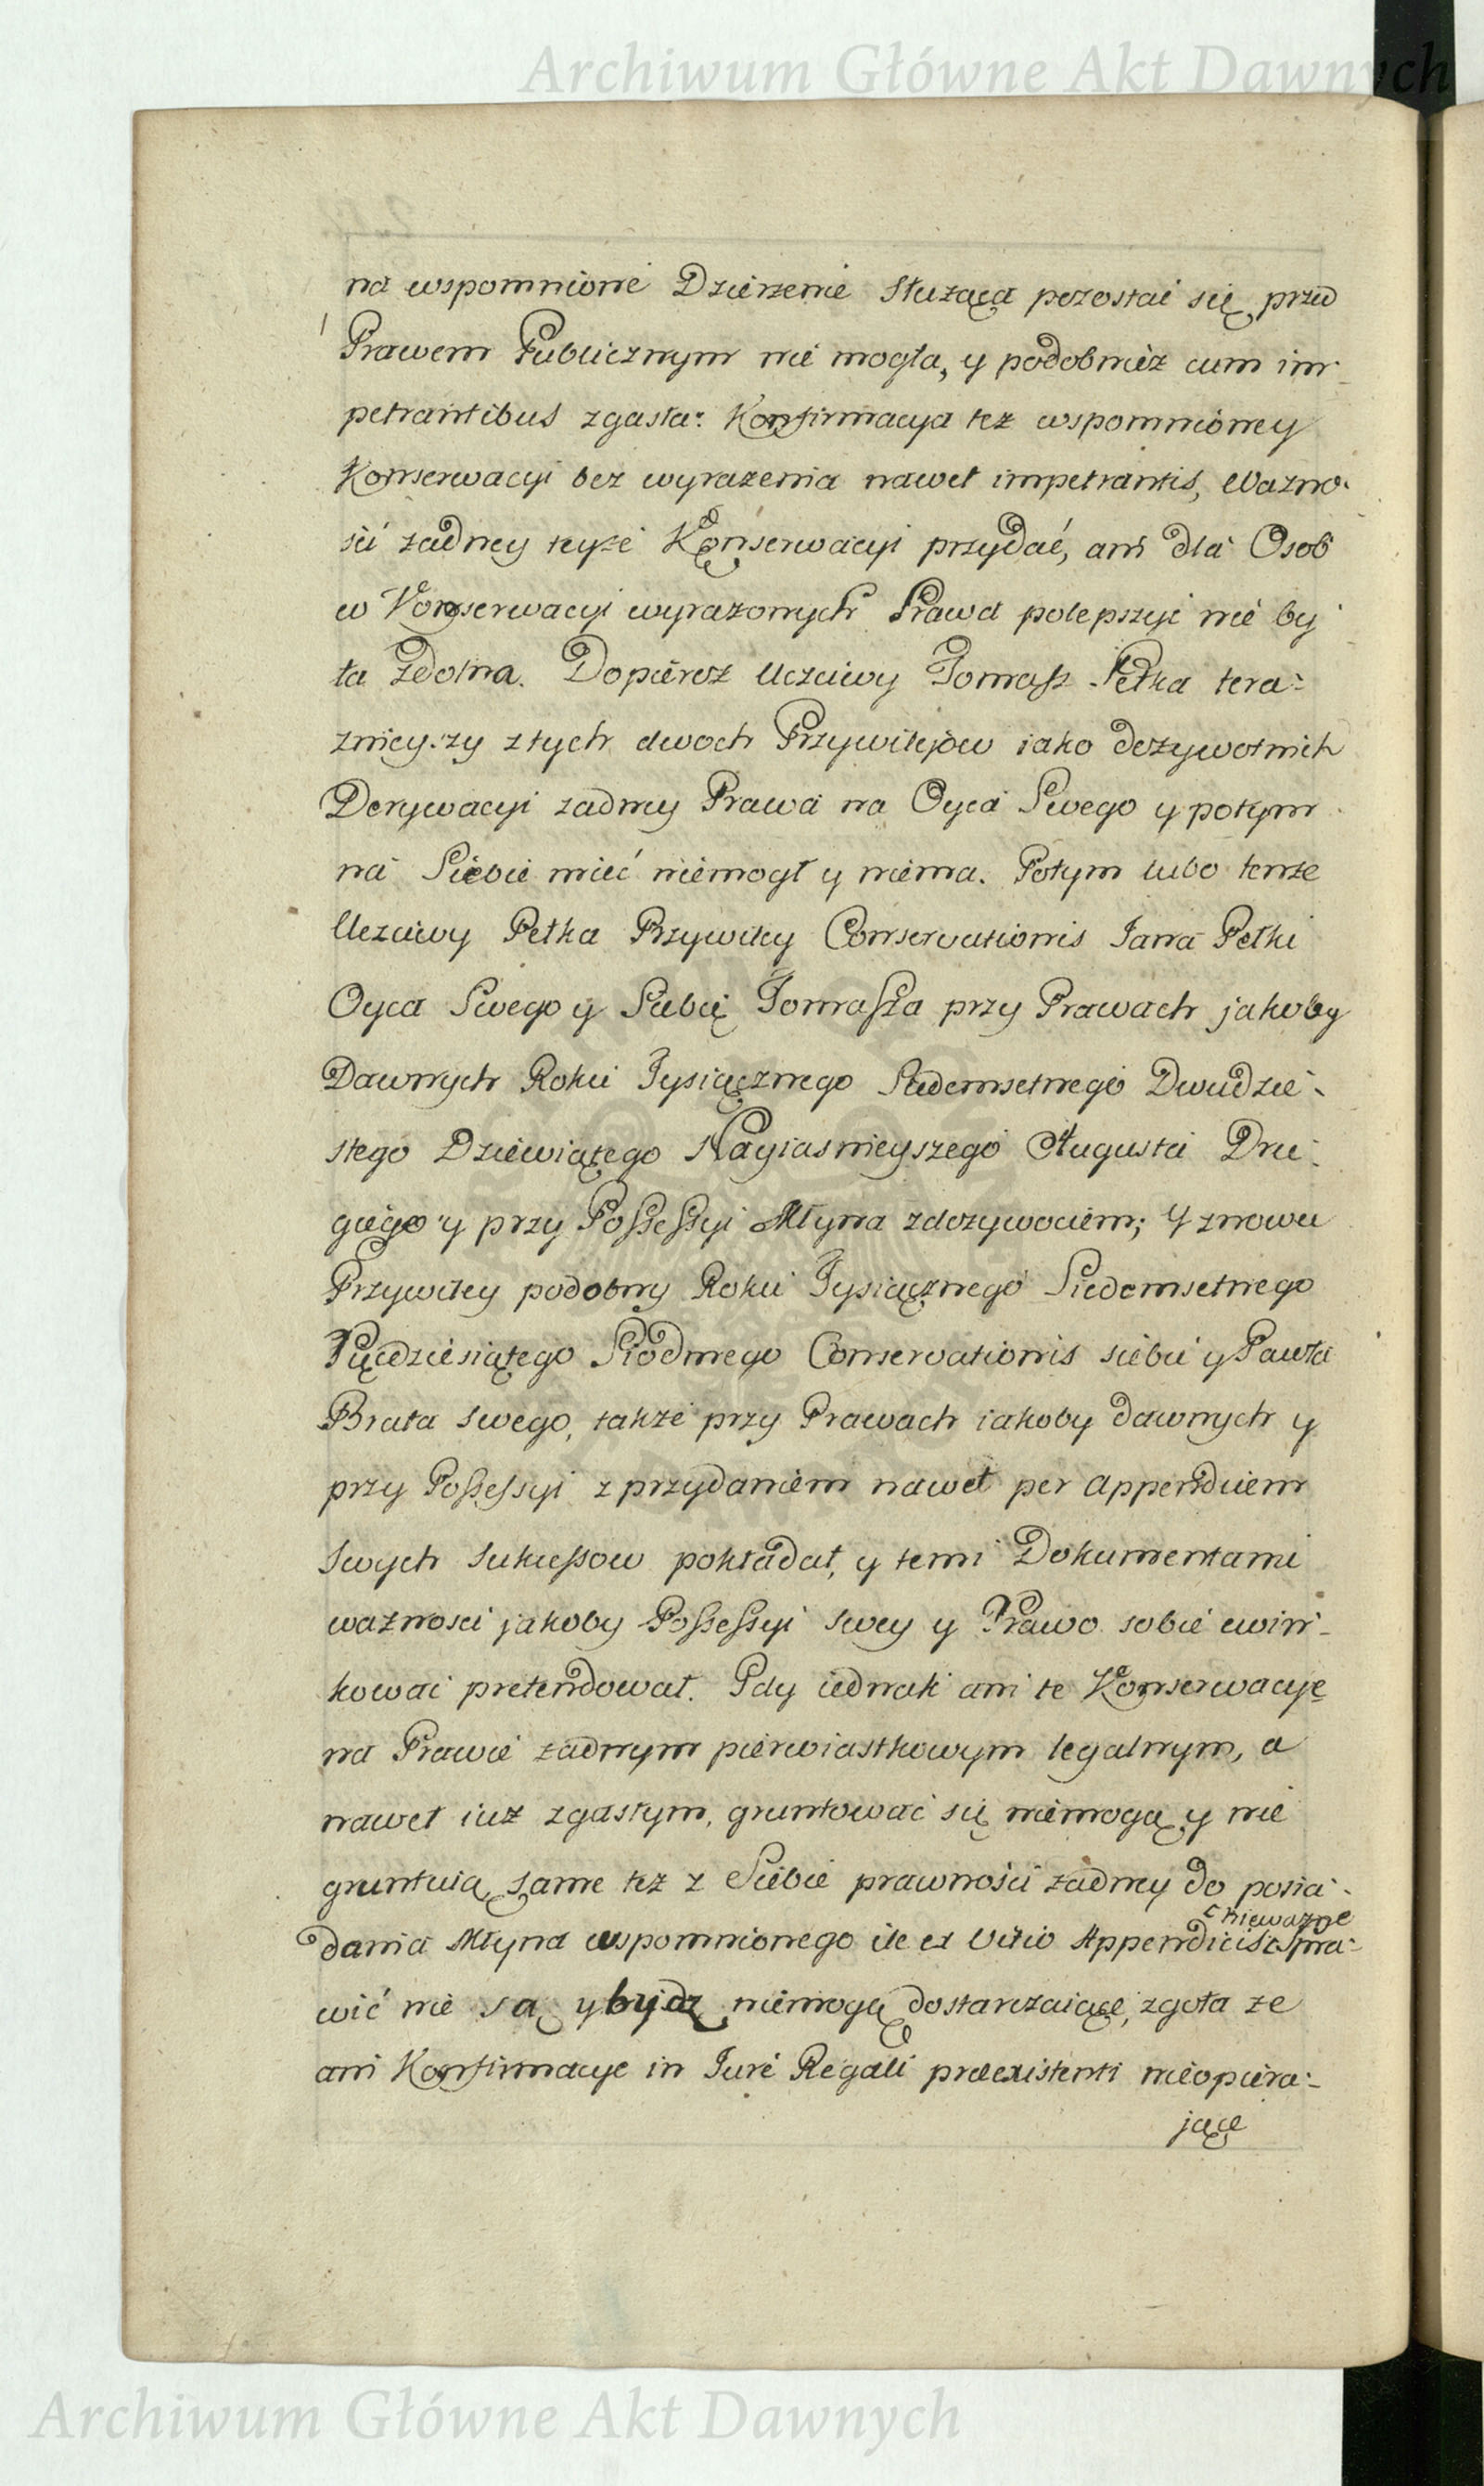 Archiwum Główne Akt Dawnych
na wspomnione Dzierzenie Służąca pozostać się przed
Prawem Publicznym nie mogła, y podobnież cum im-
petrantibus zgasła: Konfirmacya też wspomnioney
Konserwacyi bez wyrażenia nawet impetrantis, Ważno-
ści żadney teyże Konserwacyi przydać, ani dla Osob
w Konserwacyi wyrażonych Prawa polepszyć nie by
ła zdolna. Dopieroż Uczciwy Tomasz Pełka tera-
znieyszy z tych dwoch Przywilejow iako dożywotnich
Derywacyi żadney Prawa na Oyca Swego y potym
na Siebie mieć niemogł y niema. Potym lubo tenże
Uczciwy Pełka Przywiley Conservationis Jana Pełki
Oyca Swego y Siebie Tomasza przy Prawach jakoby
Dawnych Roku Tysiącznego Siedemsetnego Dwudzie-
stego Dziewiątego Nayiasnieyszego Augusta Dru-
giego y przy Possessyi Młyna z dozywociem; y znowu
Przywiley podobny Roku Tysiącznego Siedemsetnego
Pięćdziesiątego Siodmego Conservationis siebie y Pawła
Brata swego, także przy Prawach iakoby dawnych y
przy Possessyi z przydaniem nawet per Appendicem
Swych Sukcessow pokładał, y temi Dokumentami
ważności jakoby Possessyi swey y Prawo sobie ewin-
kować pretendował. Gdy iednak ani te Konserwacye
na Prawie żadnym pierwiastkowym legalnym, a
nawet iuż zgasłym, gruntować się niemogą y nie
gruntuią, same też z Siebie prawności żadney do posia-
dania Młyna wspomnionego ile ex Vitio Appendicis spra-
c nieważne
wić nie są y bydz niemogą dostarczaiące, zgoła że
ani Konfirmacye in Jure Regali preexistenti nieopiera-
jące
Archiwum Główne Akt Dawnych